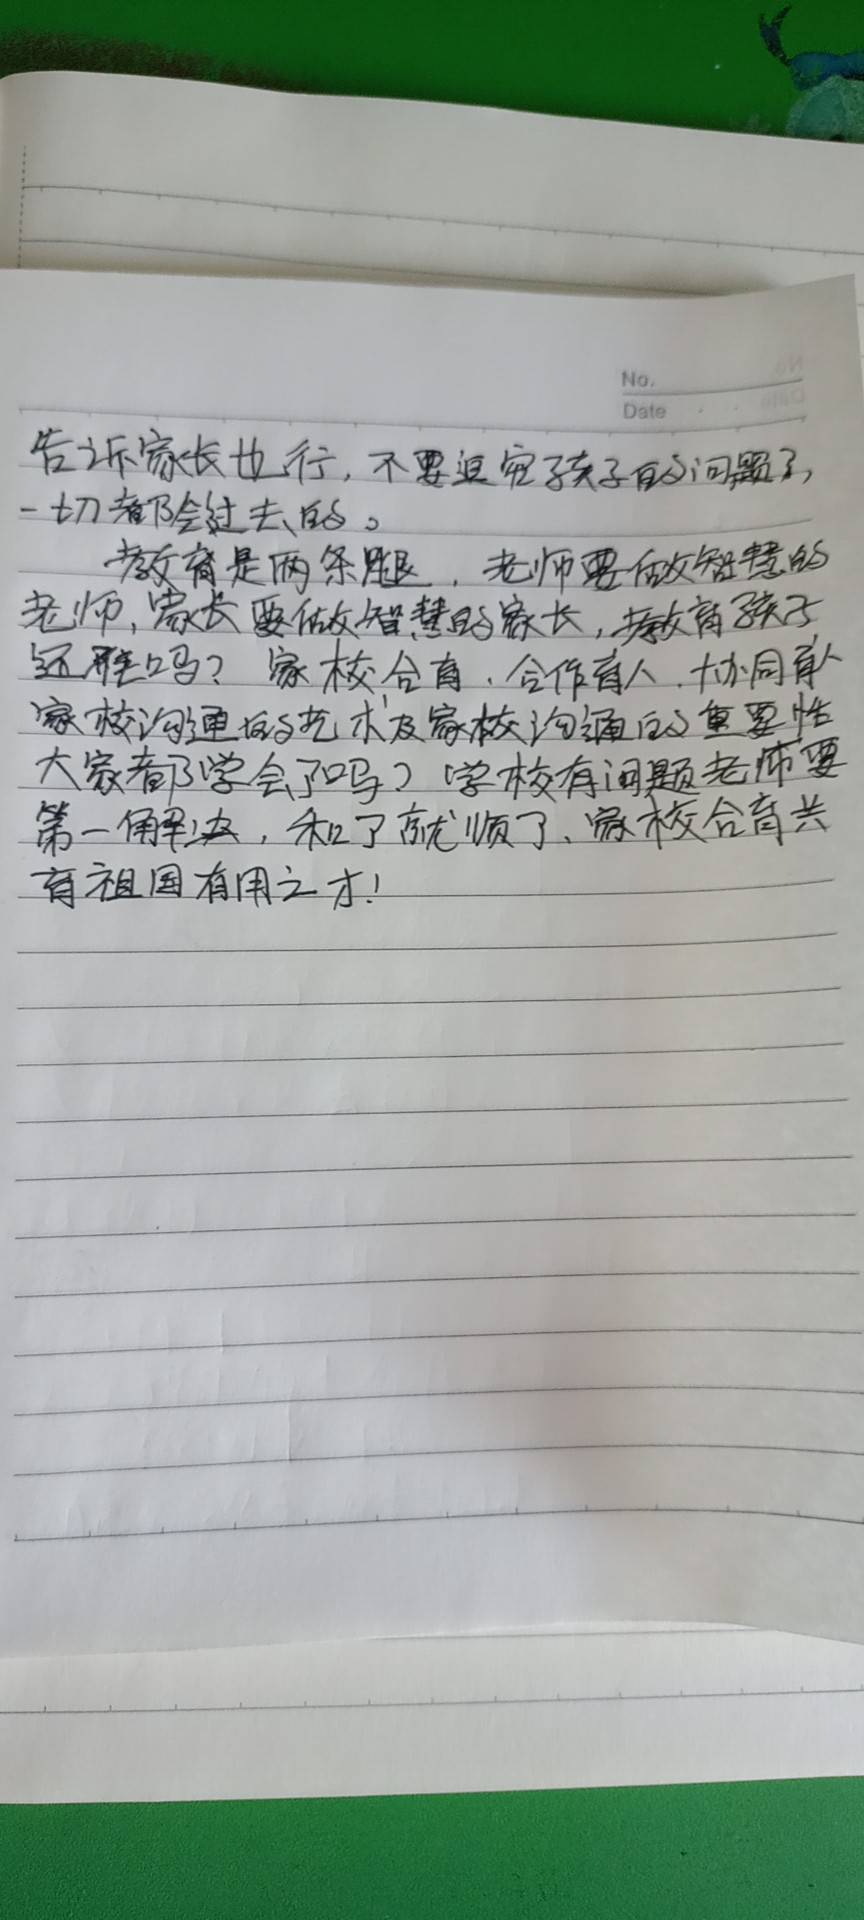 No.
Date
告诉家长也行，不要追究孩子的问题了，
一切都会过去的。
教育是两条腿，老师要做智慧的
老师，家长要做智慧的家长，教育孩子
还难吗？家校合育、合作育人、协同育人
家校沟通的艺术及家校沟通的重要性
大家都学会了吗？学校有问题老师要
第一解决，和了就顺了、家校合育共
育祖国有用之才！